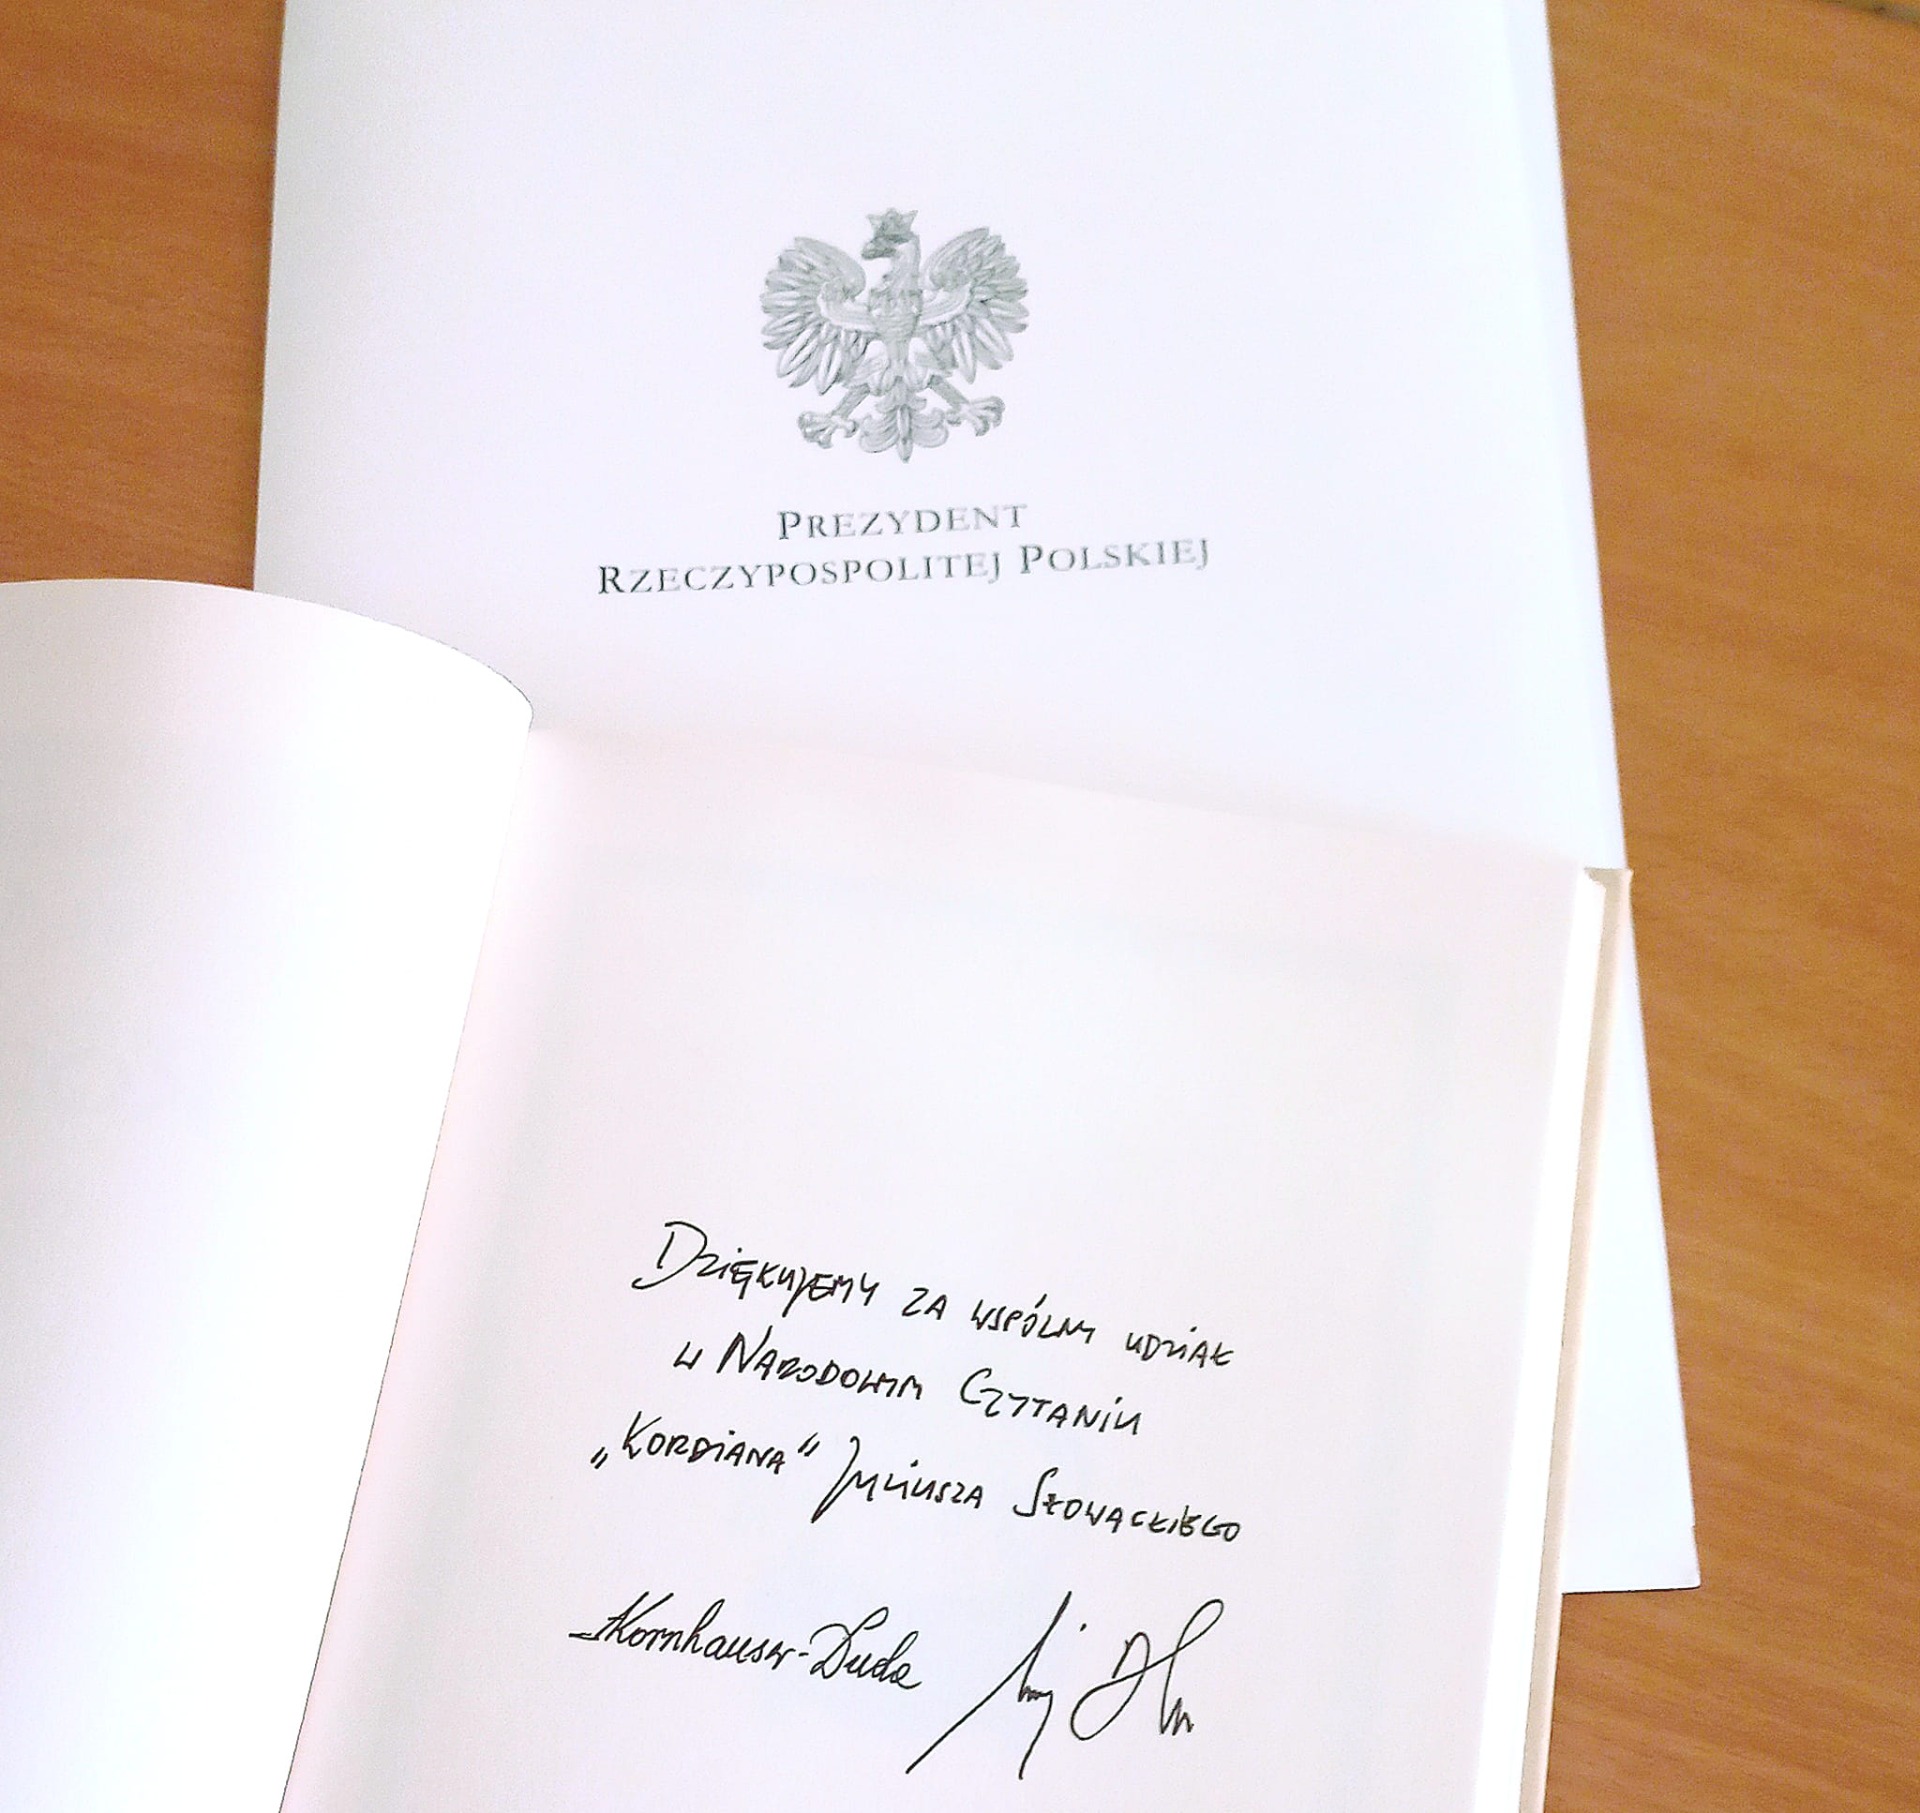 PREZYDENT
RZECZYPOSPOLITEJ POLSKIEJ
DZIĘKUJEMY ZA WSPÓLNY UDZIAŁ
W NARODOWYM CZYTANIU
„KORDIANA" JULIUSZA SŁOWACKIEGO
AKornhauser-Duda